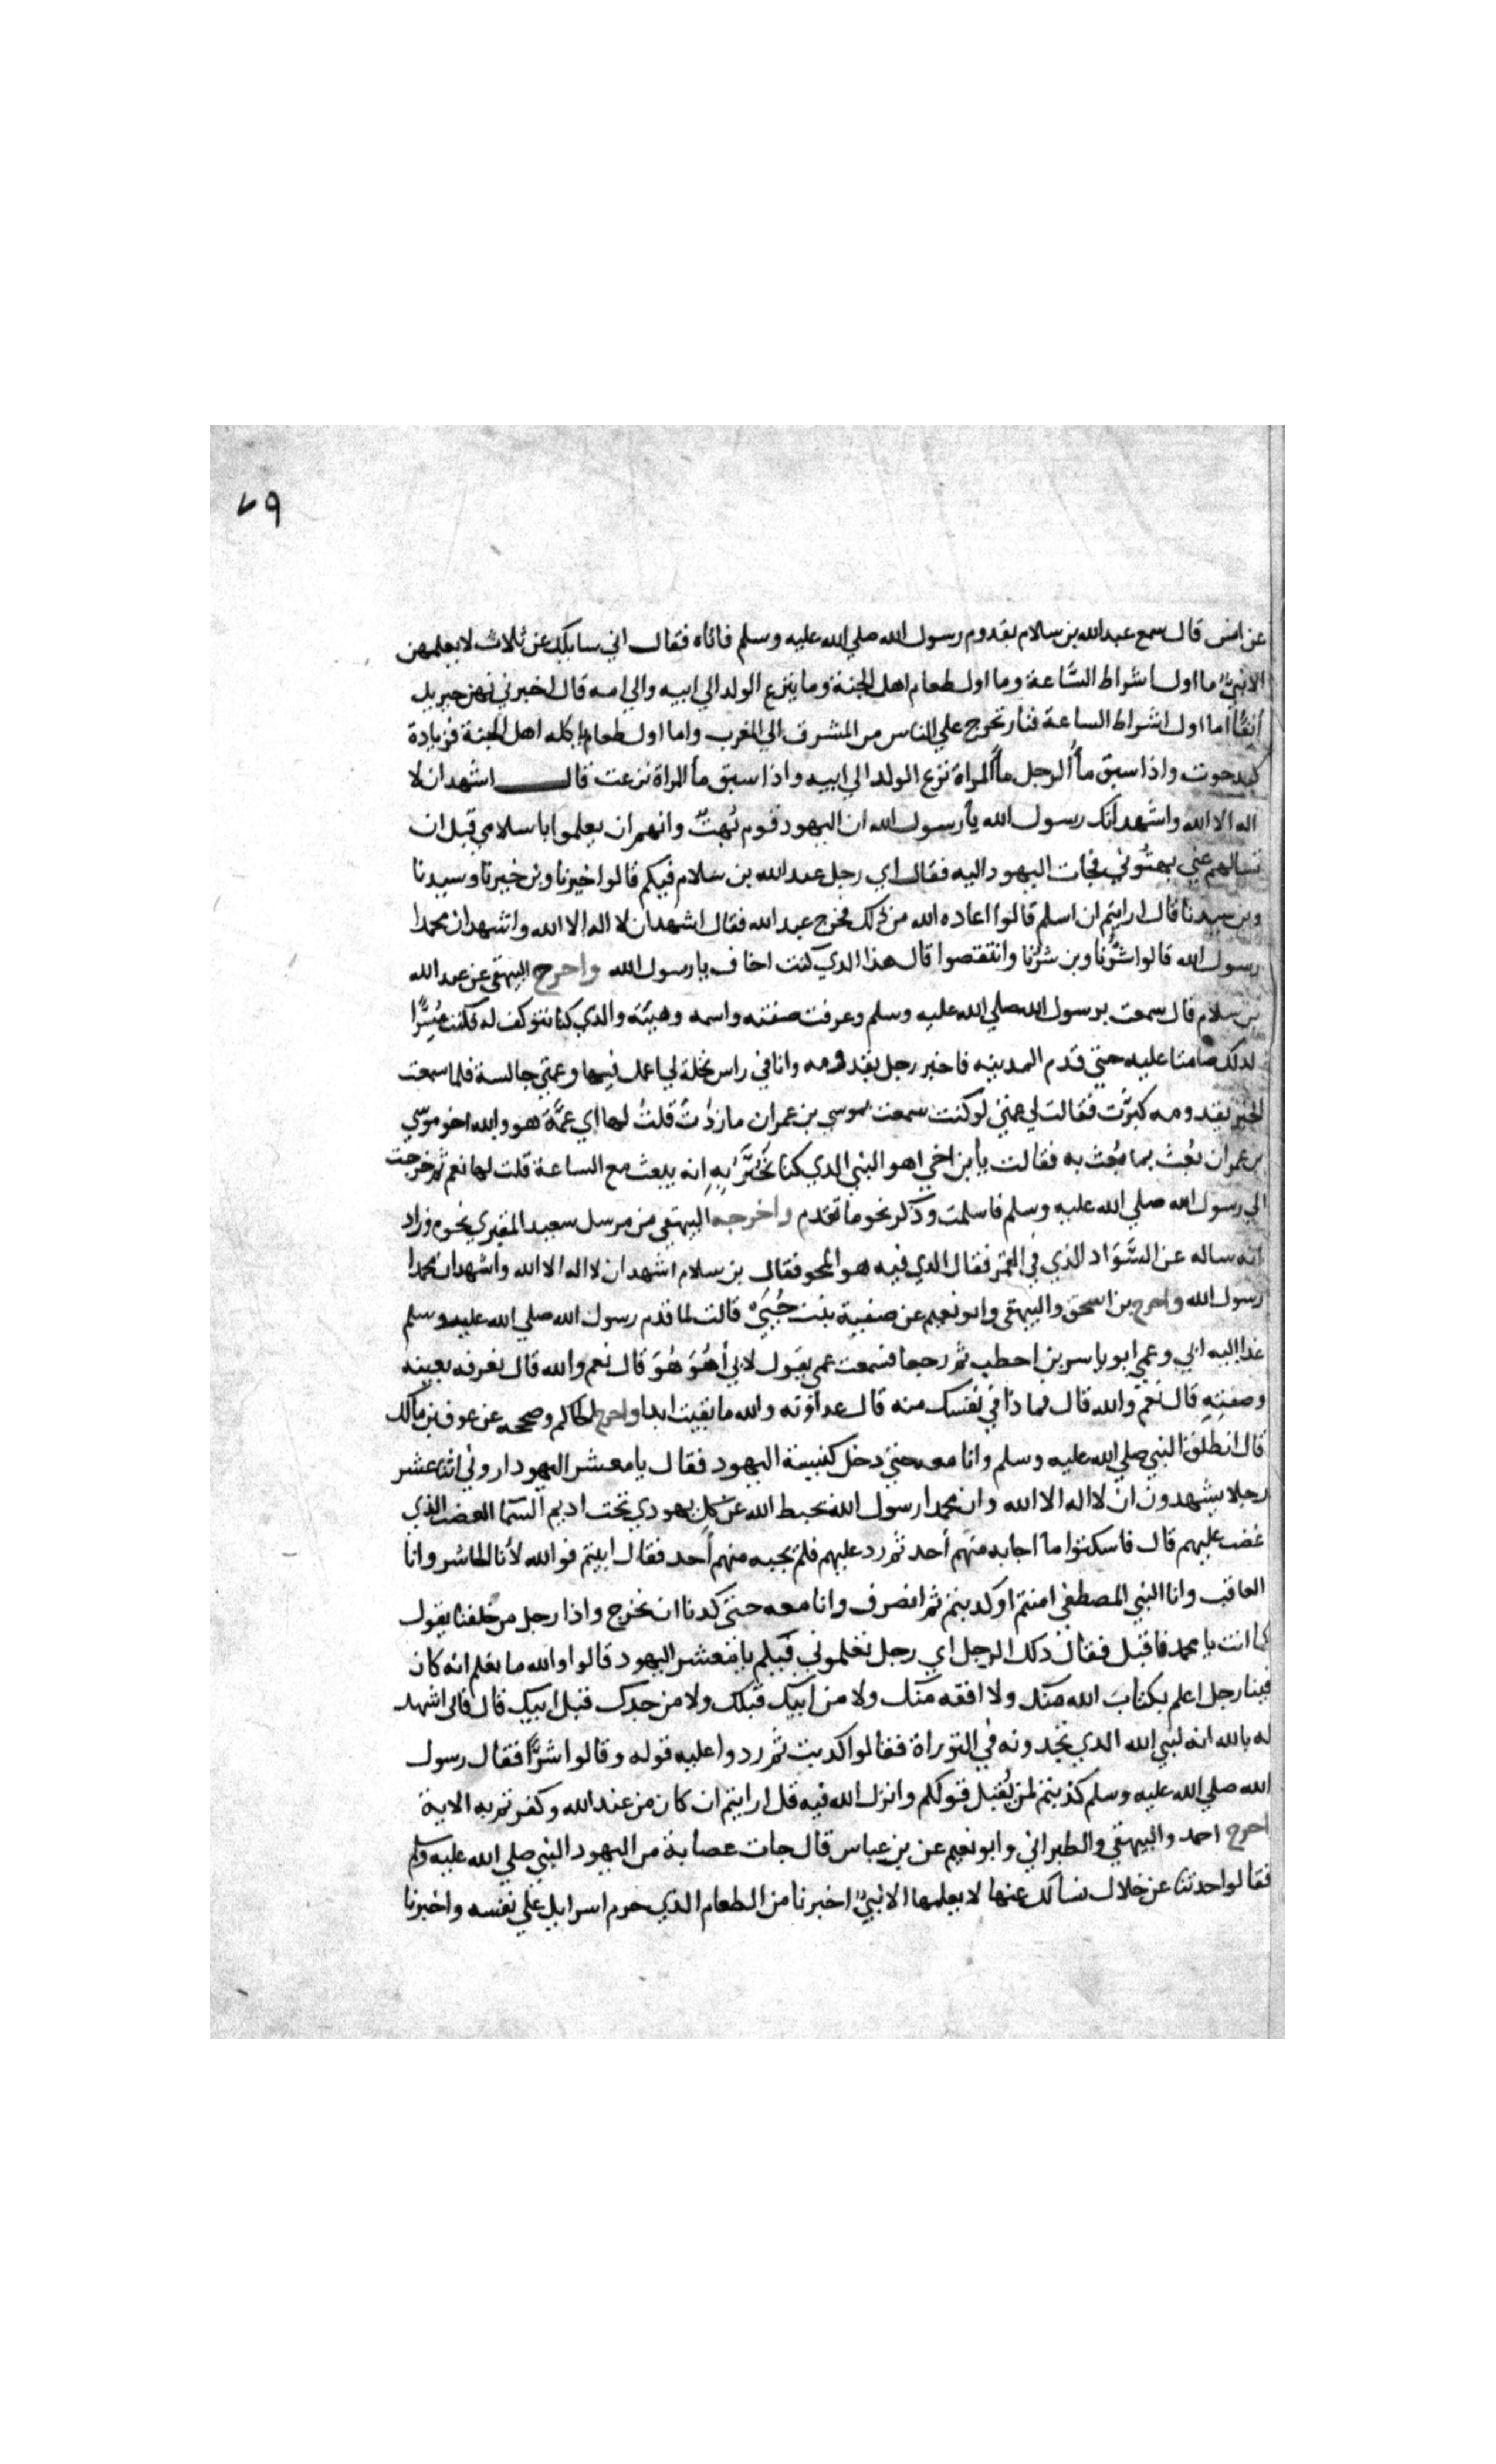 ٧٩
عن انس قال سمع عبد الله بن سلام بقدوم رسول الله صلي الله عليه وسلم فاتاه فقال اني سايلك عن ثلاث لا يعلمهن
الا نبيٌّ ما اول اشراط السَّاعة وما اول طعام اهل الجنة وما ينزع الولد الي ابيه والي امه قال اخبرني بهن جبريل
أنِفًا اما اول اشراط الساعة فنار تخرج علي الناس من المشرق الي المغرب واما اول طعام ياكله اهل الجنة فزيادة
كبد حوت واذا سبق مأُ الرجل مأَ المراة نزع الولد الي ابيه واذا سبق مأ المراة نزعت قال اشهد ان لا
اله الا الله واشهد انك رسول الله يأ رسول الله ان اليهود قوم بُهتٌ وانهم ان يعلموا باسلامي قبل ان
تسالهم عني بهتُوني فجات اليهود اليه فقال اي رجل عبد الله بن سلام فيكم قالوا خيرنا وبن خيرنا وسيدنا
وبن سيدنا قال ارايتم ان اسلم قالوا اعاذه الله من ذلك فخرج عبد الله فقال اشهد ان لا اله الا الله واشهد ان محمدا
رسول الله قالوا شرُّنا وبن شرِّنا وانتقصوا قال هذا الذي كنت اخاف يا رسول الله واخرج البيهقي عن عبد الله
بن سلام قال سمعت برسول الله صلي الله عليه وسلم وعرفت صفته واسمه وهيئته والذي كنا نتوكف له فكنت مُسِرًّا
لذلك صامتا عليه حتي قدم المدينه فاخبر رجل بقدومه وانا في راس نخلة لي اعمل فيها وعمتي جالسة فلما سمعت
الخبر بقدومه كبرَّت فقالت لي عمتي لو كنت سمعت بموسي بن عمران ما زدْتَ قلتُ لها اي عمَّة هو والله اخو موسي
بن عمران بُعِثَ بما بُعِثَ به فقالت يأ بن اخي اهو النبي الذي كنا نُخبَّرُ بِهِ انه يبعث مع الساعة قلت لها نعم ثم خرجت
الي رسول الله صلي الله عليه وسلم فاسلمت وذكر نحو ما تقدم واخرجه البيهقي من مرسل سعيد المقبري نحوه وزاد
انه ساله عن السَّوَاد الذي في القمر فقال الذي فيه هو المحو فقال بن سلام اشهد ان لا اله الا الله واشهد ان محمدا
رسول الله واخرج بن اسحق والبيهقي وابو نعيم عن صفية بنت حُيَيٍّ قالت لما قدم رسول الله صلي الله عليه وسلم
غدا اليه ابي وعمي ابو ياسر بن احطب ثم رجعا فسمعت عمي يقول لابي أهُوَ هُوَ قال نعم والله قال تعرفه بعينه
وصفتِهِ قال نعم والله قال فما ذا في نفسك منه قال عداوته والله ما بقيت ابدا واخرج الحاكم وصححه عن عوف بن مالك
قال انطلق النبي صلي الله عليه وسلم وانا معه حتي دخل كنيسة اليهود فقال يا معشر اليهود اروني اثنا عشر
رجلا يشهدون ان لا اله الا الله وان محمدا رسول الله يحبط الله عن كل يهودي تحت اديم السما الغضب الذي
غضب عليهم قال فاسكتوا مأ اجابه منهم أحد ثم رد عليهم فلم يجبه منهم أحد فقال ابيتم فو الله لأنا الحاشر وانا
العاقب وانا النبي المصطفي امنتم او كذبتم ثم انصرف وانا معه حتي كدنا ان نخرج واذا رجل من خلفنا يقول
كما انت يا محمد فاقبل فقال ذلك الرجل اي رجل تعلموني فيكم يا معشر اليهود قالوا والله ما نعلم انه كان
فينا رجل اعلم بكتاب الله منك ولا افقه منك ولا من ابيك قبلك ولا من جدك قبل ابيك قال فاني اشهد
له بالله انه لنبي الله الذي تجدونه في التوراة فقالوا كذبت ثم ردوا عليه قوله وقالوا شرًّا فقال رسول
الله صلي الله عليه وسلم كذبتم لن يُقبل قولكم وانزل الله فيه قل ارايتم ان كان من عند الله وكفرتم به الاية
اخرج احمد والبيهقي والطبراني وابو نعيم عن بن عباس قال جات عصابة من اليهود النبي صلي الله عليه وسلم
فقالوا حدثنا عن خلال نسالك عنها لا يعلمها الا نبيٌّ اخبرنا من الطعام الذي حرم اسرايل علي نفسه واخبرنا